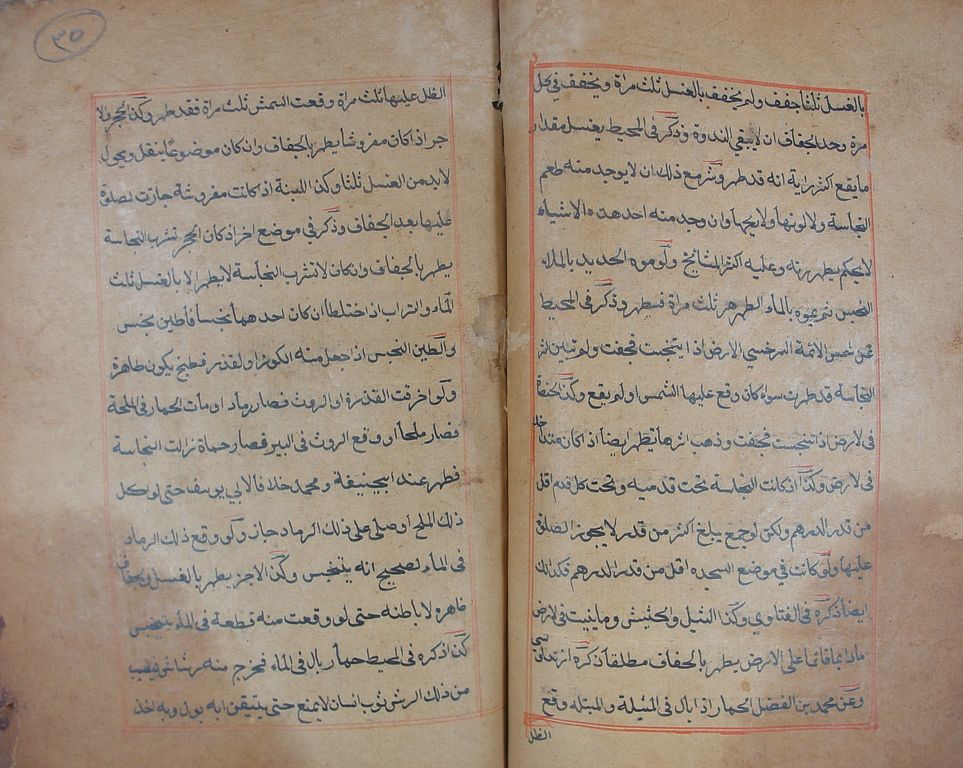 بالغسل ثلثا جفف ولم يجفف بالغسل ثلث مراة ويخفف في كل
مرة وحد الجفاف ان لا يبقي الندوة وذكر في المحيط يغسل مقدار
ما يقع اكثر راية انه قد طهر وشرمع ذلك ان لا يوجد منه طعم
النجاسة ولا لونها ولا ريحها وان وجد منه احد هذه الاشياء
لا يحكم بطهارته وعليه اكثر المشائخ ولو موه الحديد بالماء
النجس ثم يموه بالماء الطهر ثلث مراة فيطهر وذكر في المحيط
عن شمس الائمة السرخسي الارض اذا ينجست فجفت ولم تبين اثر
النجاسة قد طهرت سواء كان وقع عليها الشمس او لم يقع وكذا الحشاة
في لارض اذا تنجست فجفت وذهب اثرها يطهر ايضا اذ اكان متداخله
في لارض وكذا اذ كانت النجاسة تحت قدميه وتحت كل قدم اقل
من قدر الدرهم ولكن لو جمع يبلغ اكثر من قدر لا يجوز الصلوة
عليها ولو كانت في موضع السجده اقل من قدر الدرهم فكذلك
ايضا ذكره في الفتاوي وكذا الثيل والحشيش وما ينبت في لارض
مادايما قائما على الارض يطهر بالجفاف مطلقا ذكره الزندانسي
وعن محمد بن الفضل الحمار اذ ابال في المثيلة والمبتله وقع
الظل
٣٥
الظل عليها ثلث مراة وقعت السمش ثلث مراة فقد طهر وكذا الحجر ولا
جر اذ كان مفروشا يطهر بالجفاف وان كان موضوعا ينقل ويحول
لابد من الغسل ثلثا وكذا اللبنة اذ كانت مفروشة جازت لصلوة
عليها بعد الجفاف وذكر في موضع اخر اذ كان الحجر تشرب النجاسة
يطهر بالجفاف وان كان لا تشرب النجاسة لا يطهر الا بالغسل ثلث
الماء والتراب اذ اختلطا ان كان احدهما نجسا فاطين نجس
والطين النجس اذ اجعل منه الكوز او لقدر فطبخ يكون طاهرة
ولو احرقت القذرة او الروث فصار رماد او مات الحمار في الملحة
فصار ملحا او وقع الروث في البير فصار حماة نزالت النجاسة
فطهر عند ابي حنيفة ومحمد خلافا لابي يوسف حتى لو اكل
ذلك الملح او صلى على ذلك الرماد جاز ولو وقع ذلك الرماد
في الماء لصحيح انه يتنجس وكذا الاجر يطهر بالغسل ويجفاف
ظاهره لا باطنه حتى لو وقعت منه قطعة في الماء يتنجس
كذا ذكره في المحيط حمار بال في الماء فخرج منه رشاش فيصيب
من ذلك الرش ثوب انسان لا يمنع حتى يتيقن انه بول وبه اخذ